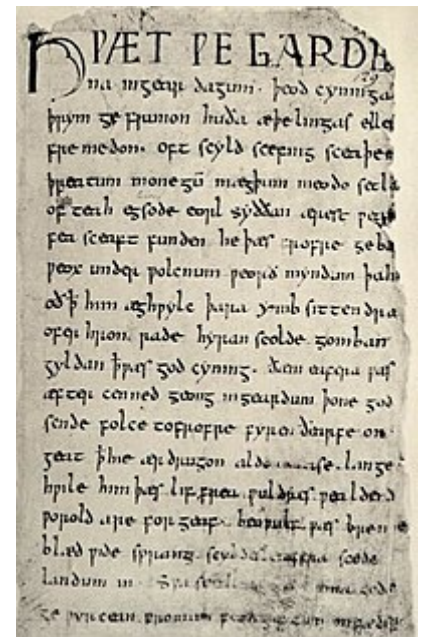 HǷÆT ǷE GARDE
na ingear dagum. þeod cyninga
þrym ge frunon huða æþelingas elle
fre medon. oft scyld scefing sceaþe
þreatum monegū mægþum meodo setla
of teah egsode eorl syððan ærest ƿear
fea sceaft funden he þæs frofre geba
ƿeox under ƿolcnum ƿeorð myndum þah
oðꝥ him æghƿylc þara ymb sittendra
ofer hron rade hyran scolde gomban
gyldan ꝥ ƿæs god cyning. ðæm eafera ƿæs
æfter cenned geong ingeardum þone god
sende folce tofrofre fyren ðearfe on
geat ꝥ hie ær drugon aldor ase. lange
hƿile him þæs lif frea ƿuldres ƿealdend
ƿorold are for geaf. beoƿulf ƿæs breme
blæd ƿide sprang scyldes eafera scede
landum in. Sƿa sceal uma gode
ge ƿyrcean fromum feoh giftum